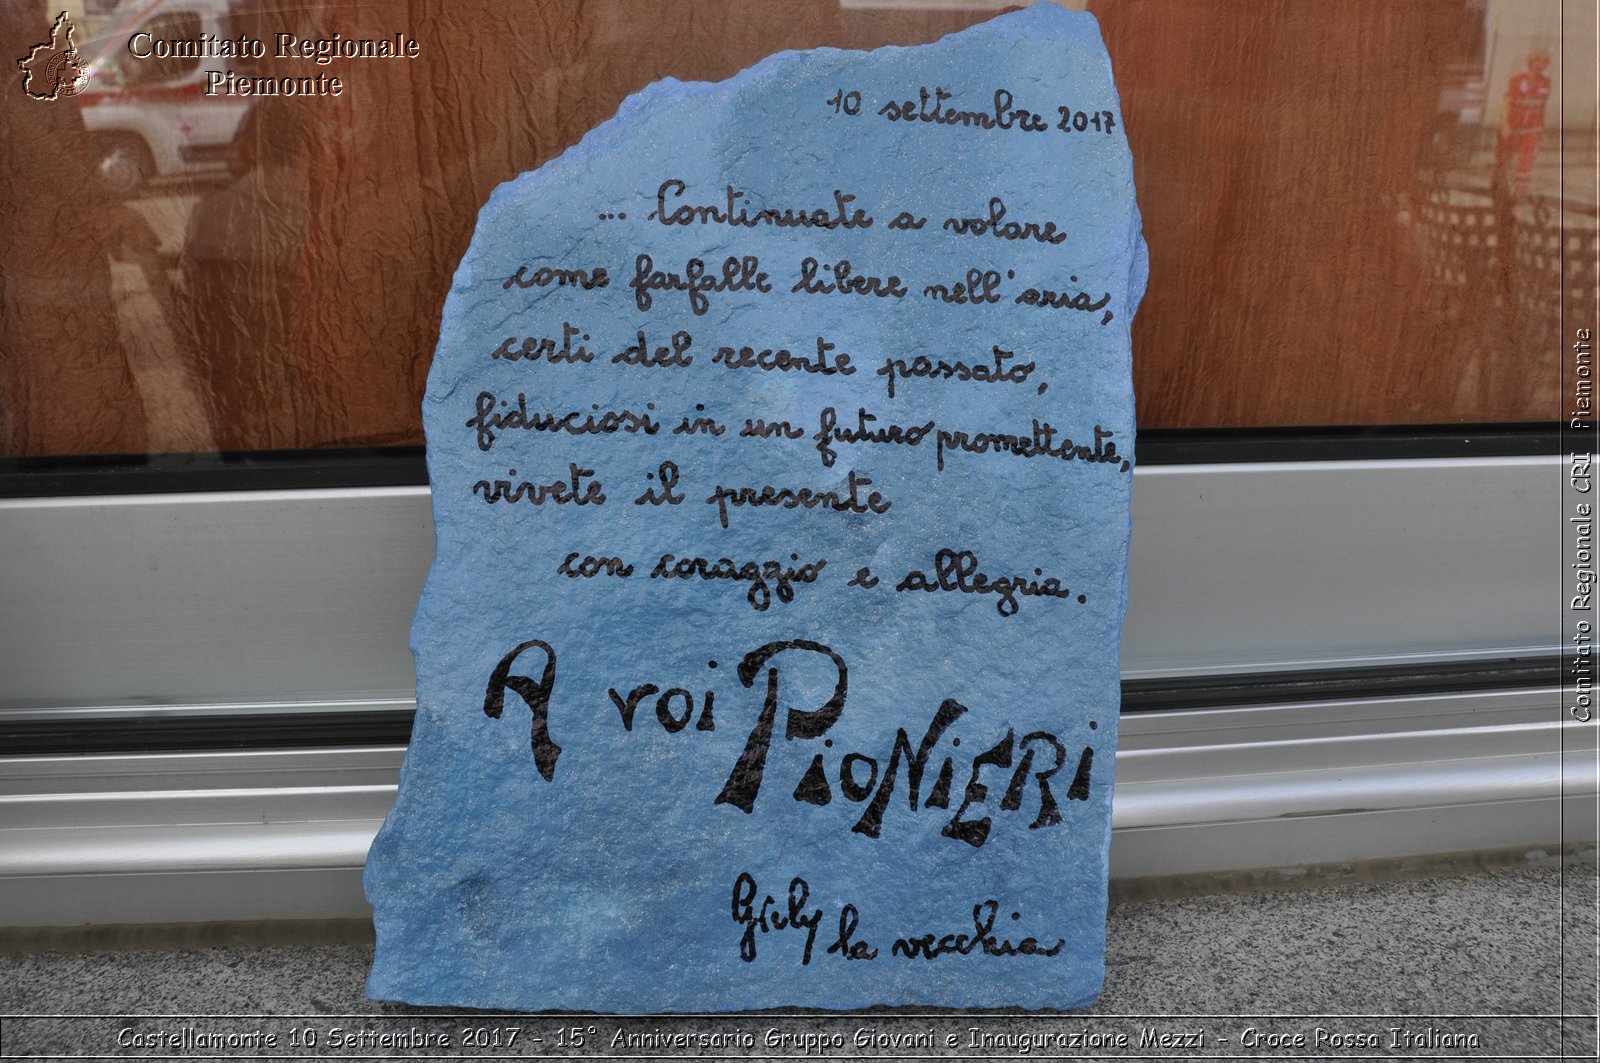 Comitato Regionale
Piemonte
10 settembre 2017
... Continuate a volare
come farfalle libere nell'aria,
certi del recente passato,
fiduciosi in un futuro promettente,
vivete il presente
con coraggio e allegria.
A voi PiONiERi
la vecchia
Comitato Regionale CRI Piemonte
Castellamonte 10 Settembre 2017 - 15° Anniversario Gruppo Giovani e Inaugurazione Mezzi - Croce Rossa Italiana